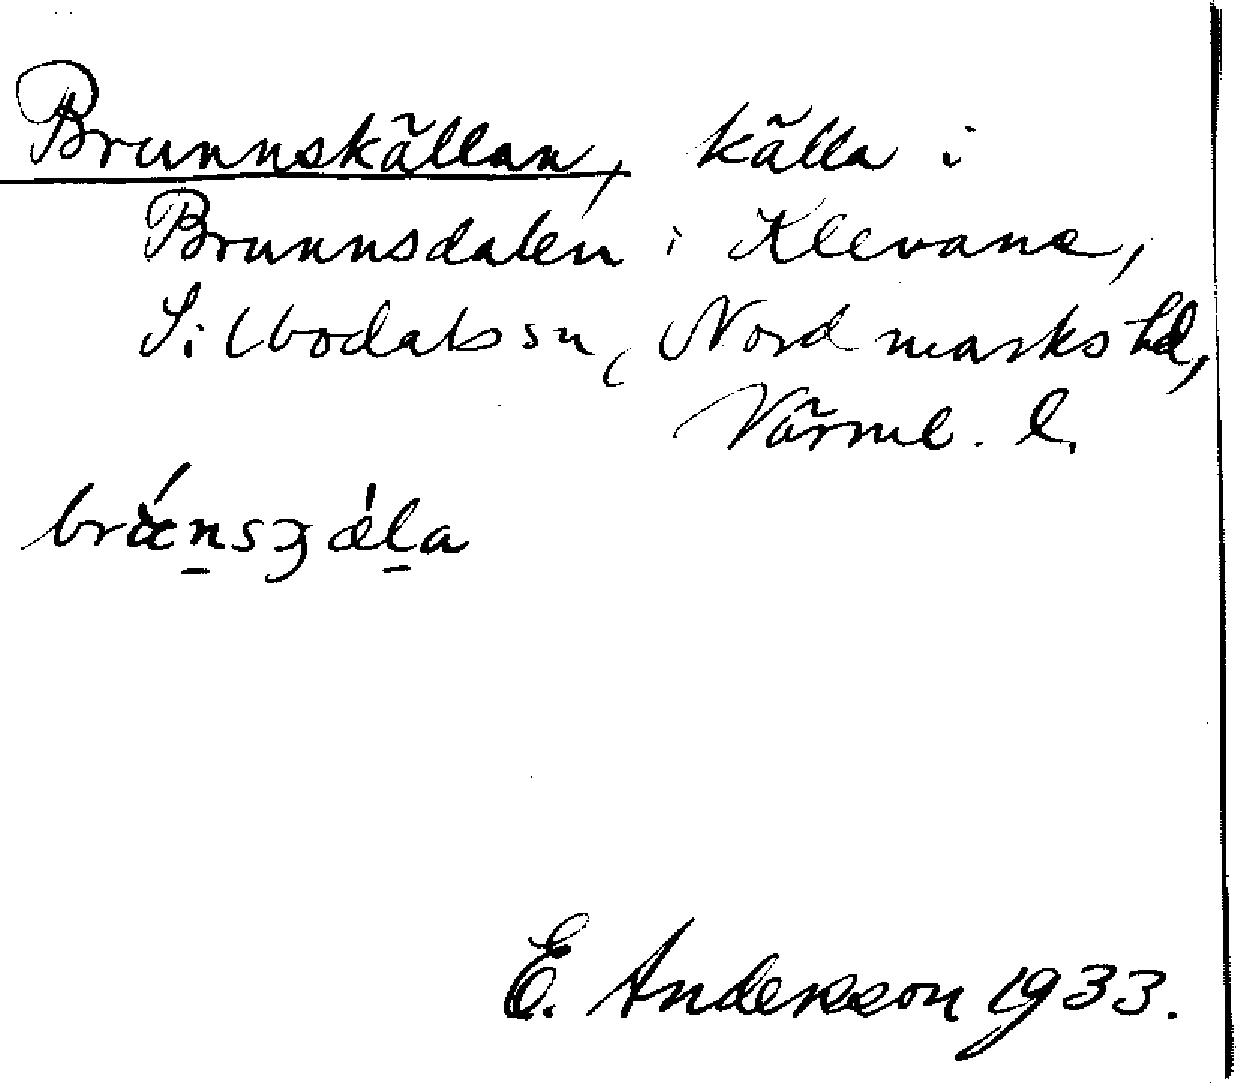 Brunnskällan, källa i
Brunnsdalen i Klevane,
Silbodals sn, Nordmarks hd,
Värml. l.
E. Andersson 1933.